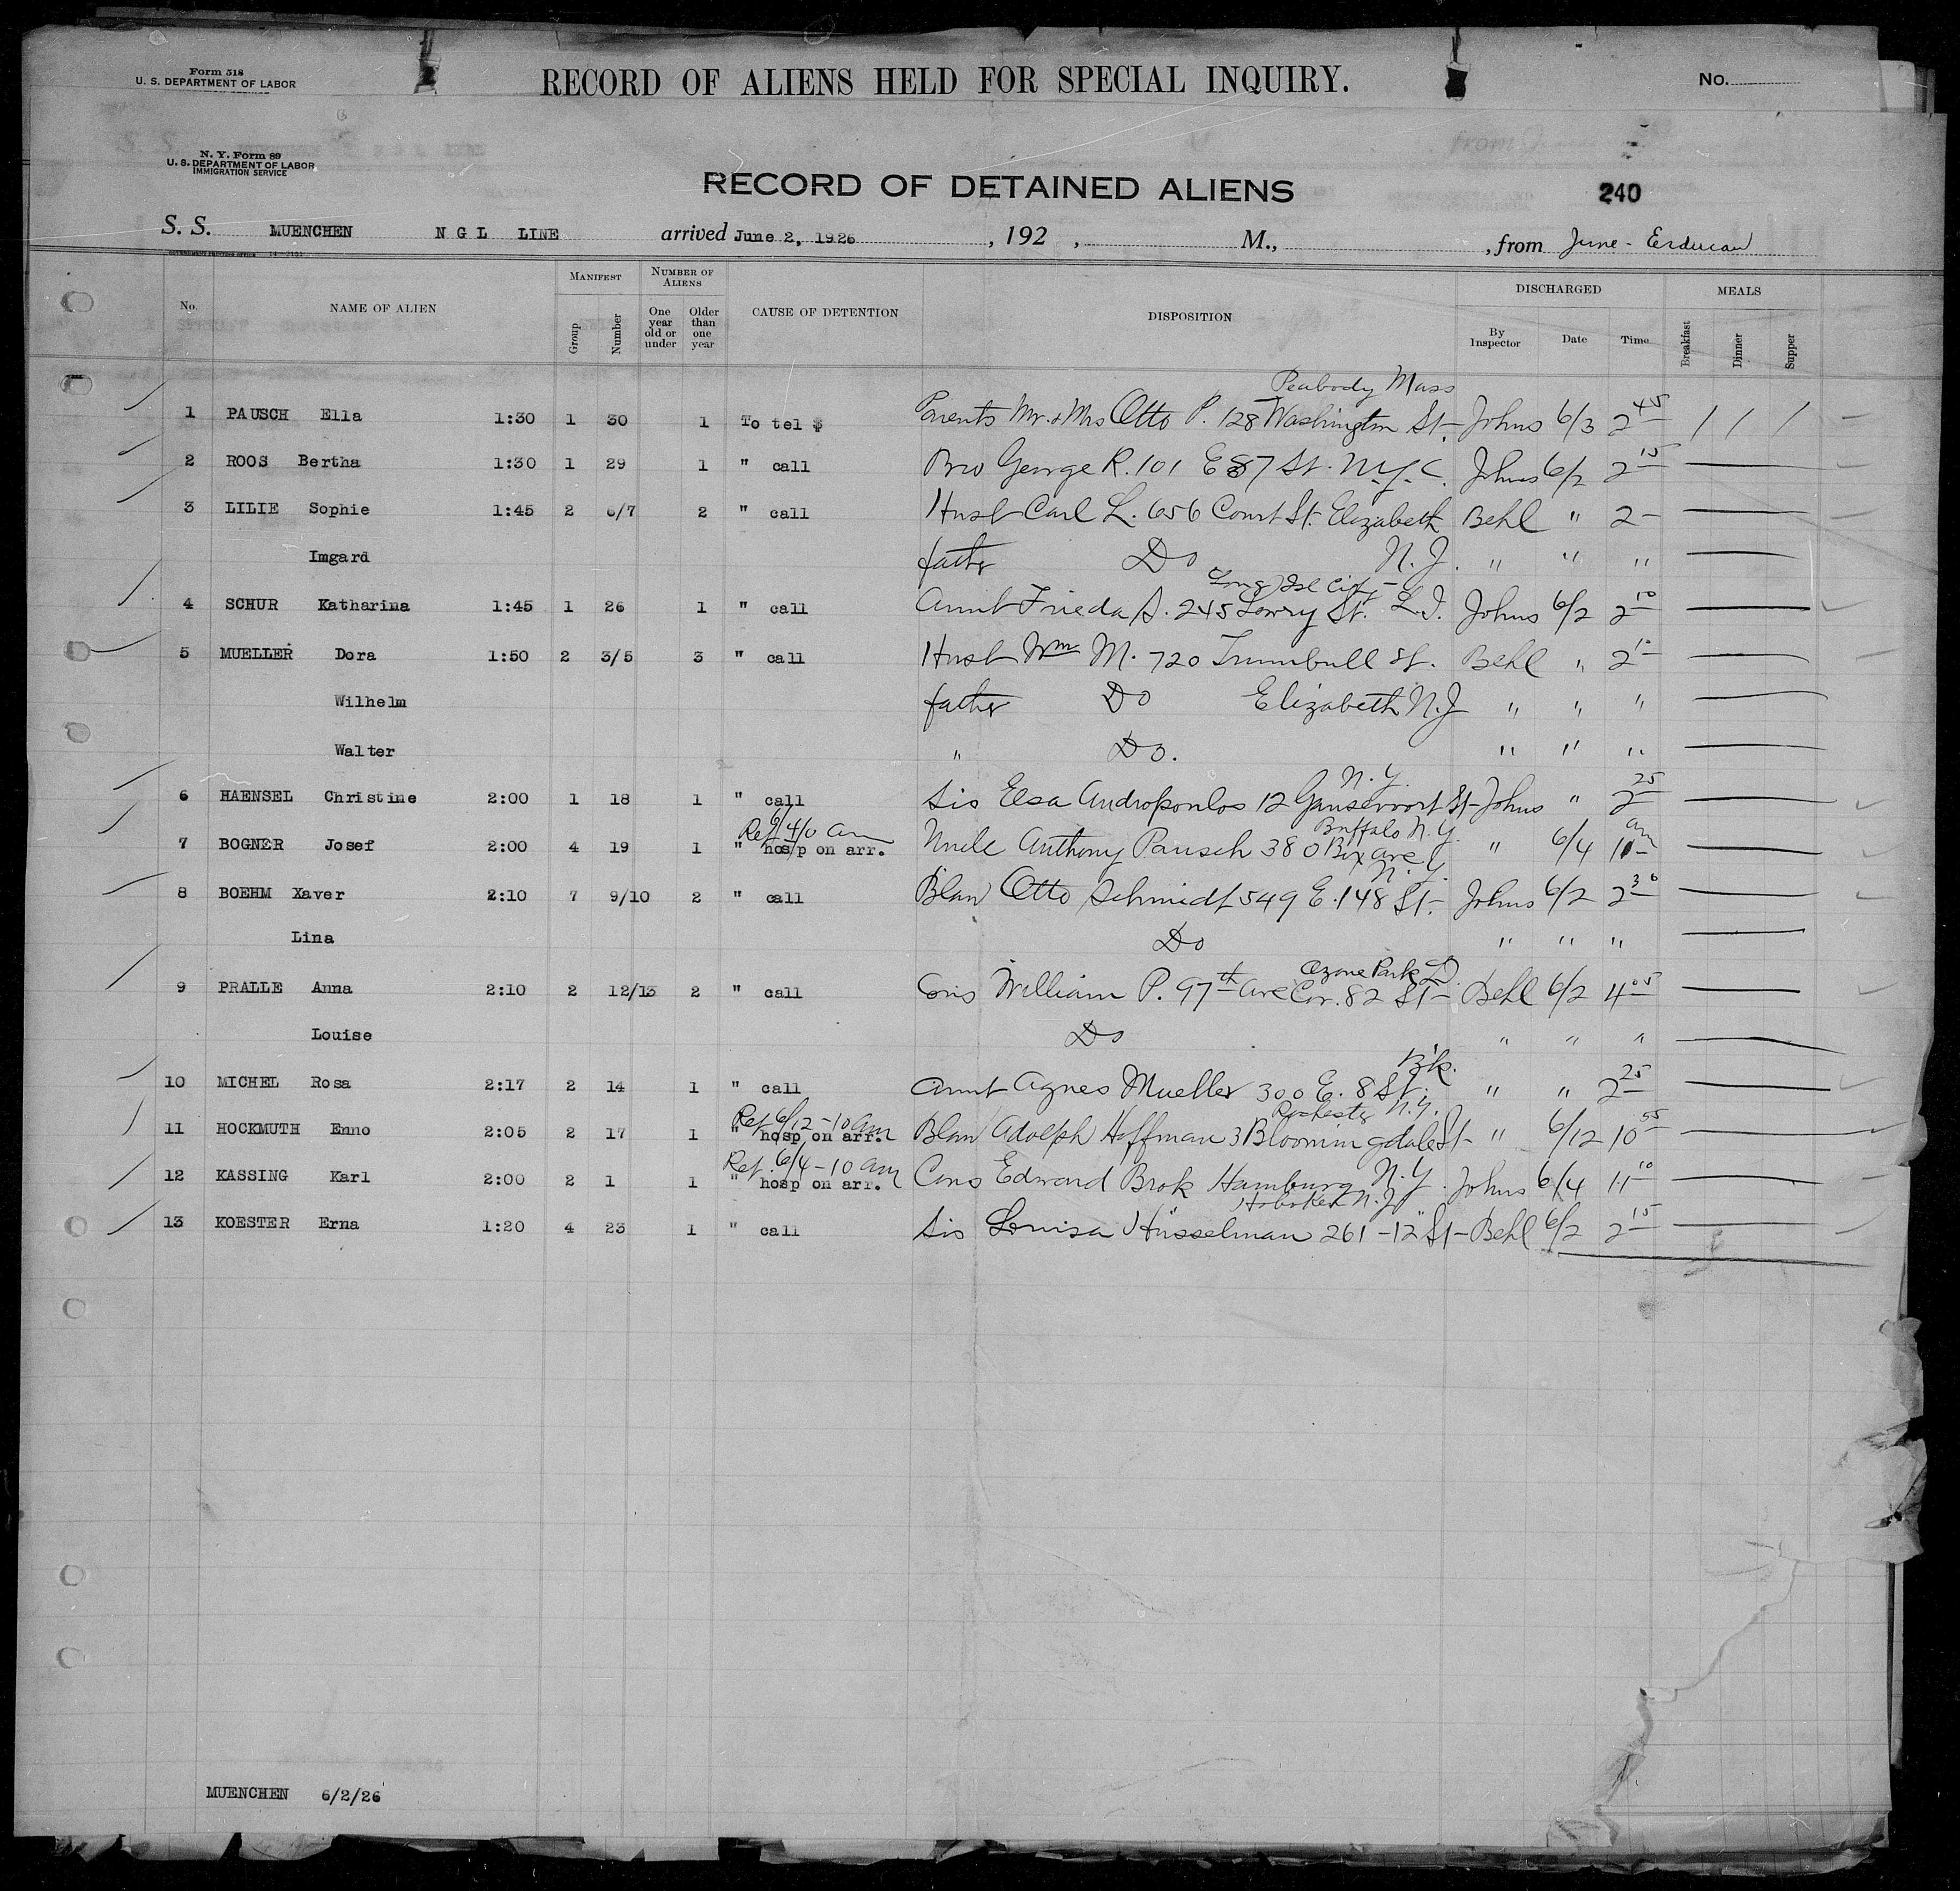 Form 518
U. S. DEPARTMENT OF LABOR
RECORD OF ALIENS HELD FOR SPECIAL INQUIRY.
No.
N. Y. Form 89
U. S. DEPARTMENT OF LABOR
IMMIGRATION SERVICE
RECORD OF DETAINED ALIENS
240
S. S. MUENCHEN N G L LINE arrived June 2, 1926 , 192 , M., , from June -
No. NAME OF ALIEN MANIFEST Group Number NUMBER OF ALIENS One year old or under Older than one year CAUSE OF DETENTION DISPOSITION DISCHARGED By Inspector Date Time MEALS Breakfast Dinner Supper
Peabody Mass
1 PAUSCH Ella 1:30 1 30 1 To tel $ Parents Mr. & Mrs Otto P. 128 Washington St- Johns 6/3 2 45 / / /
2 ROOS Bertha 1:30 1 29 1 " call Bro George R. 101 E 87 St. N.Y.C. Johns 6/2 2 15
3 LILIE Sophie 1:45 2 6/7 2 " call Husb Carl L. 656 Court St. Elizabeth Behl " 2 -
Imgard father Do N.J. " " "
Long Isl City -
4 SCHUR Katharina 1:45 1 26 1 " call Aunt Frieda S. 245 Lowry St. L.I. Johns 6/2 2 10
5 MUELLER Dora 1:50 2 3/5 3 " call Husb Wm M. 720 Trumbull St. Behl " 2 10
Wilhelm father Do Elizabeth N.J " " "
Walter " Do. " " "
N.Y.
6 HAENSEL Christine 2:00 1 18 1 " call Sis Elsa Andropoulos 12 Gansevoort St- Johns " 2 25
Buffalo N.Y.
7 BOGNER Josef 2:00 4 19 1 " hosp on arr. Uncle Anthony Pausch 380 Box Ave " 6/4 11 am
N.Y.
8 BOEHM Xaver 2:10 7 9/10 2 " call Blaw Otto Schmidt 549 E. 148 St. - Johns 6/2 2 30
Lina Do " " "
Ozone Park L.I.
9 PRALLE Anna 2:10 2 12/13 2 " call Cous William P. 97th Ave Cor. 82 St - Behl 6/2 4 05
Louise Do " " "
Bk.
10 MICHEL Rosa 2:17 2 14 1 " call Aunt Agnes Mueller 300 E. 8 St. " " 2 25
Ref 6/12 - 10 am Rochester N.Y.
11 HOCKMUTH Enno 2:05 2 17 1 " hosp on arr. Blaw Adolph Hoffman 3 Bloomingdale St- " 6/12 10 55
Ref. 6/4 - 10 am
12 KASSING Karl 2:00 2 1 1 " hosp on arr. Cous Edward Brok Hamburg N.Y. Johns 6/4 11 10
Hoboken N.J
13 KOESTER Erna 1:20 4 23 1 " call Sis Louisa Hüsselman 261 - 12" St - Behl 6/2 2 15
MUENCHEN 6/2/26